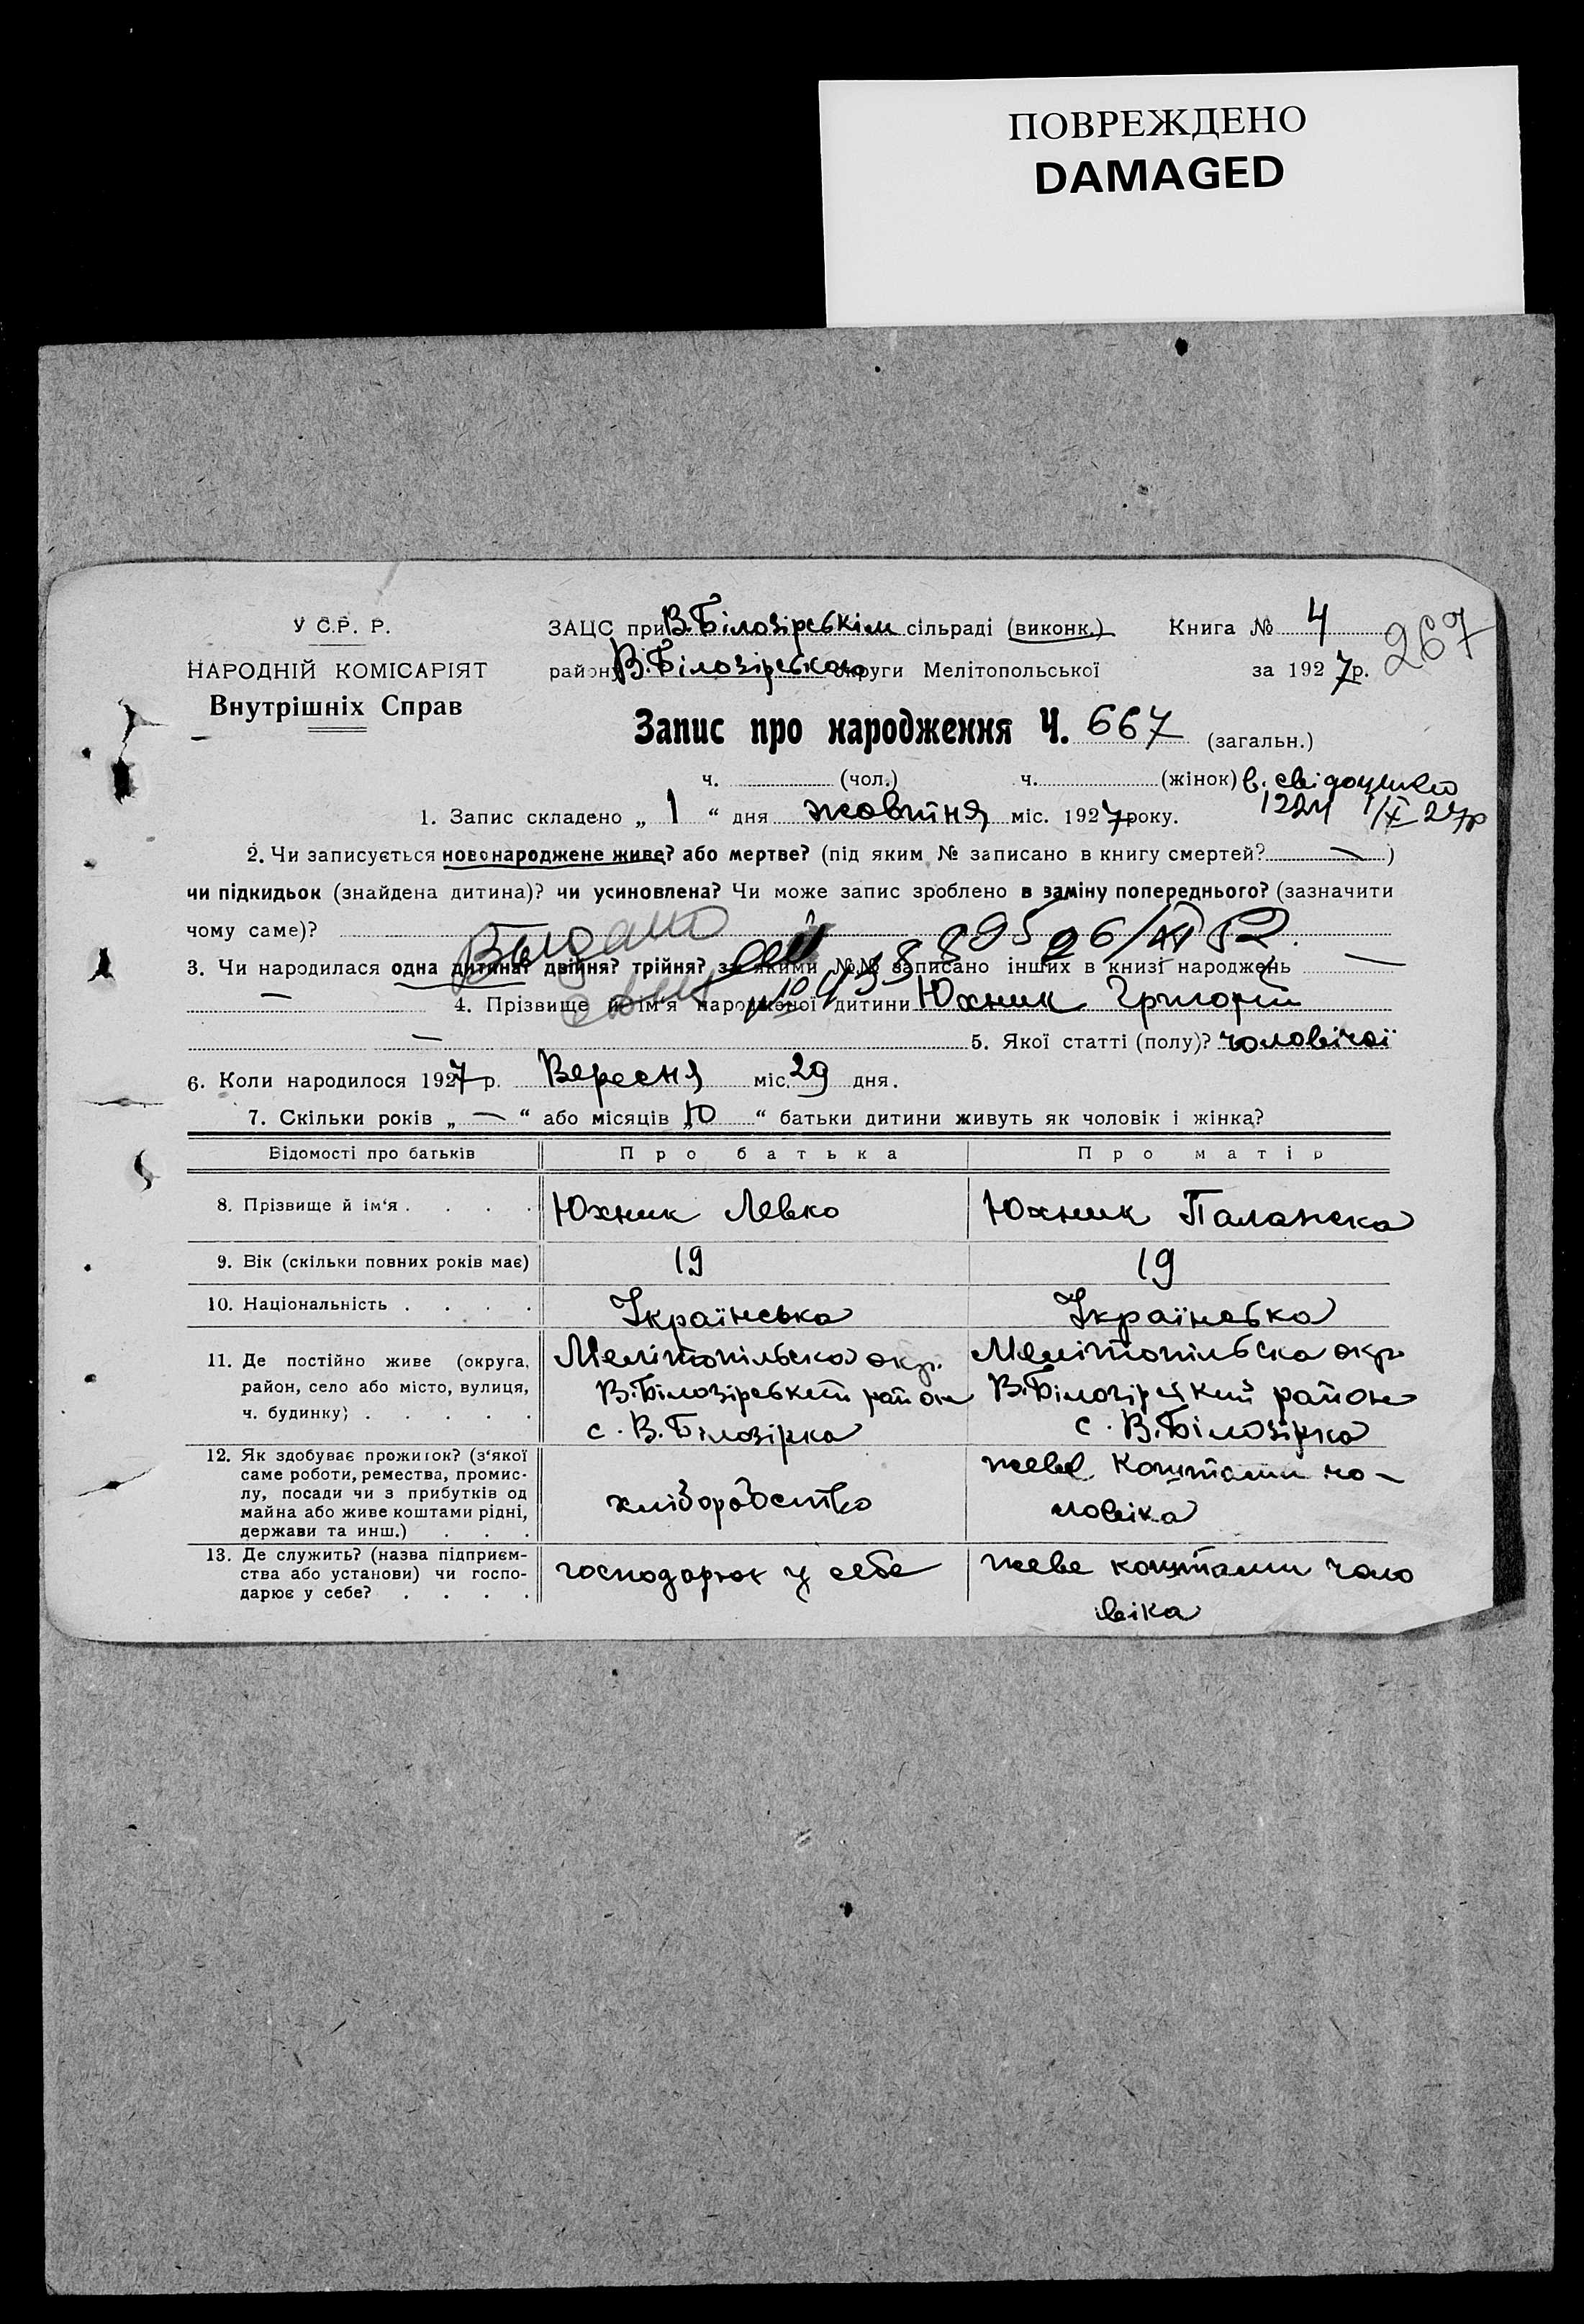 ПОВРЕЖДЕНО
DAMAGED
У С.Р. Р.
НАРОДНІЙ КОМІСАРІЯТ
Внутрішніх Справ
ЗАЦС при В.Білозірськім сільраді (виконк.) Книга № 4
267
району В.Білозірського округи Мелітопольської за 1927 р.
Запис про народження Ч. 667 (загальн.)
ч. (чол.) ч. (жінок) в. свідоцтво
1224 1/X 27р
1. Запис складено „ 1 “ дня жовтня міс. 1927 року.
2. Чи записується новонароджене живе? або мертве? (під яким № записано в книгу смертей? — )
чи підкидьок (знайдена дитина)? чи усиновлена? Чи може запис зроблено в заміну попереднього? (зазначити
чому саме)?
Выдано
3. Чи народилася одна дитина? двійня? трійня? за якими №№ записано інших в книзі народжень —
— 4. Прізвище й ім‘я народженої дитини Юхник Григорій
— 5. Якої статті (полу)? чоловічої
6. Коли народилося 1927 р. Вересня міс. 29 дня.
7. Скільки років „ — “ або місяців „ 10 “ батьки дитини живуть як чоловік і жінка?
Відомості про батьків Про батька Про матір
8. Прізвище й ім‘я . . . . Юхник Левко Юхник Палажка
9. Вік (скільки повних років має) 19 19
10. Національність . . . . Українська Українська
11. Де постійно живе (округа, район, село або місто, вулиця, ч. будинку) . . . . .
Мелітопільська окр. Мелітопільська окр
В.Білозірський район В.Білозірський район
с. В.Білозірка с. В.Білозірка
12. Як здобуває прожиток? (з‘якої саме роботи, ремества, промислу, посади чи з прибутків од майна або живе коштами рідні, держави та инш.) . . .
хліборобство
живе коштами чо-
ловіка
13. Де служить? (назва підприємства або установи) чи господарює у себе? . . . .
господарює у себе
живе коштами чоло
віка